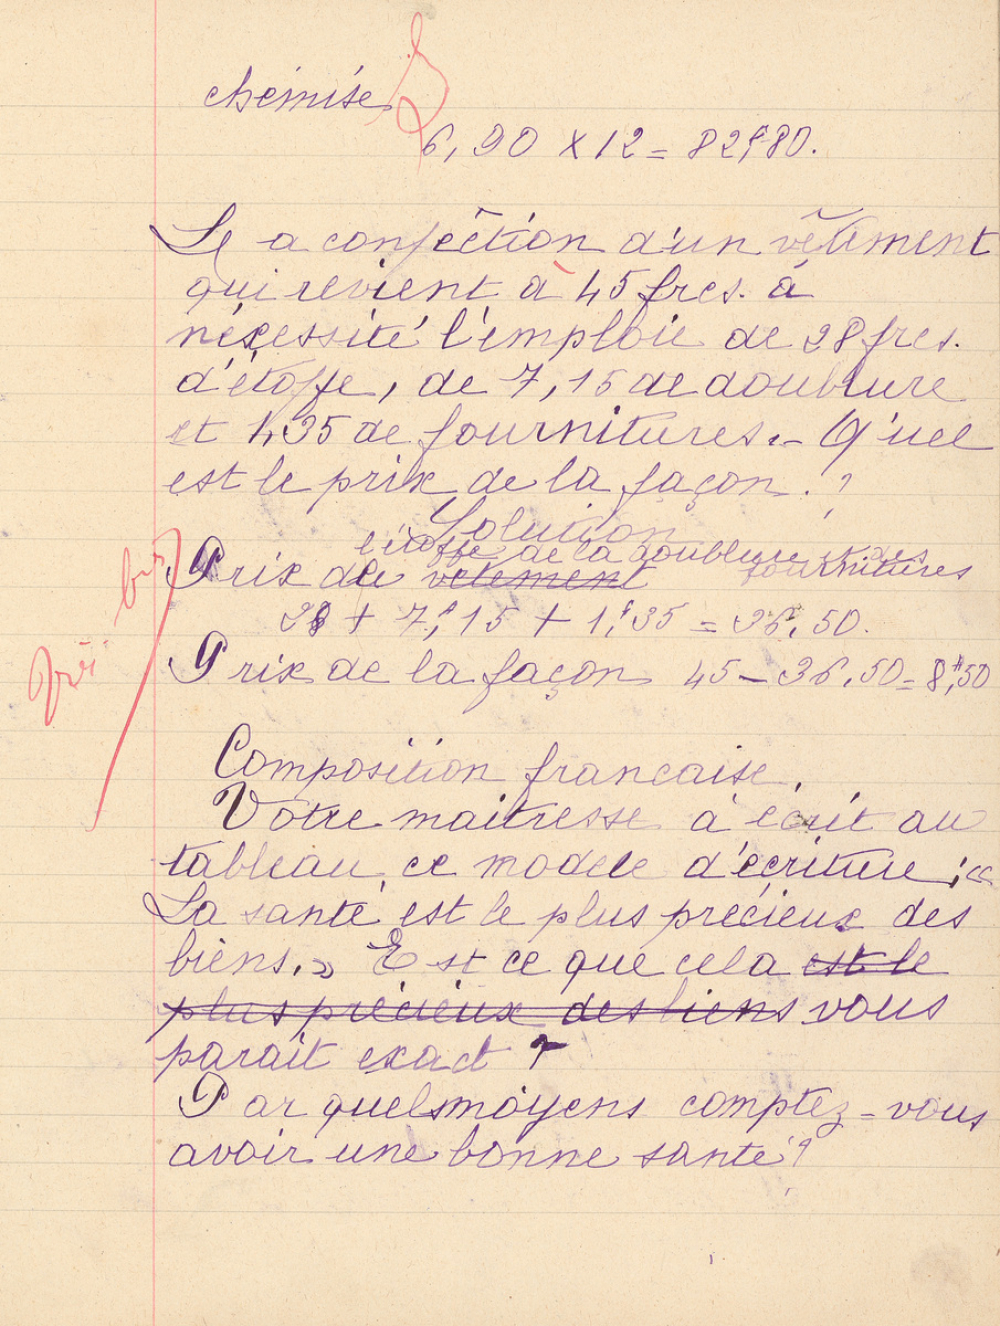 chémise
6,90 x 12 = 82f,80.
Le a confection d'un vêtement
qui revient à 45 frcs. à
nécessité l'emploie de 28 frcs.
d'étoffe, de 7,15 de doublure
et 1,35 de fournitures. - Quel
est le prix de la façon. ?
Solution
l'étoffe de la doublure et des
Prix du vêtement fournitures
28 + 7f,15 + 1f,35 = 36,50.
Prix de la façon 45 - 36,50 = 8f,50
Composition francaise.
Votre maitresse à écrit au
tableau ce modele d'écriture ; «
La santé est le plus précieux des
biens. » Est ce que cela est le
plus précieux des biens vous
parait exact ?
Par quels moyens comptez-vous
avoir une bonne santé ?